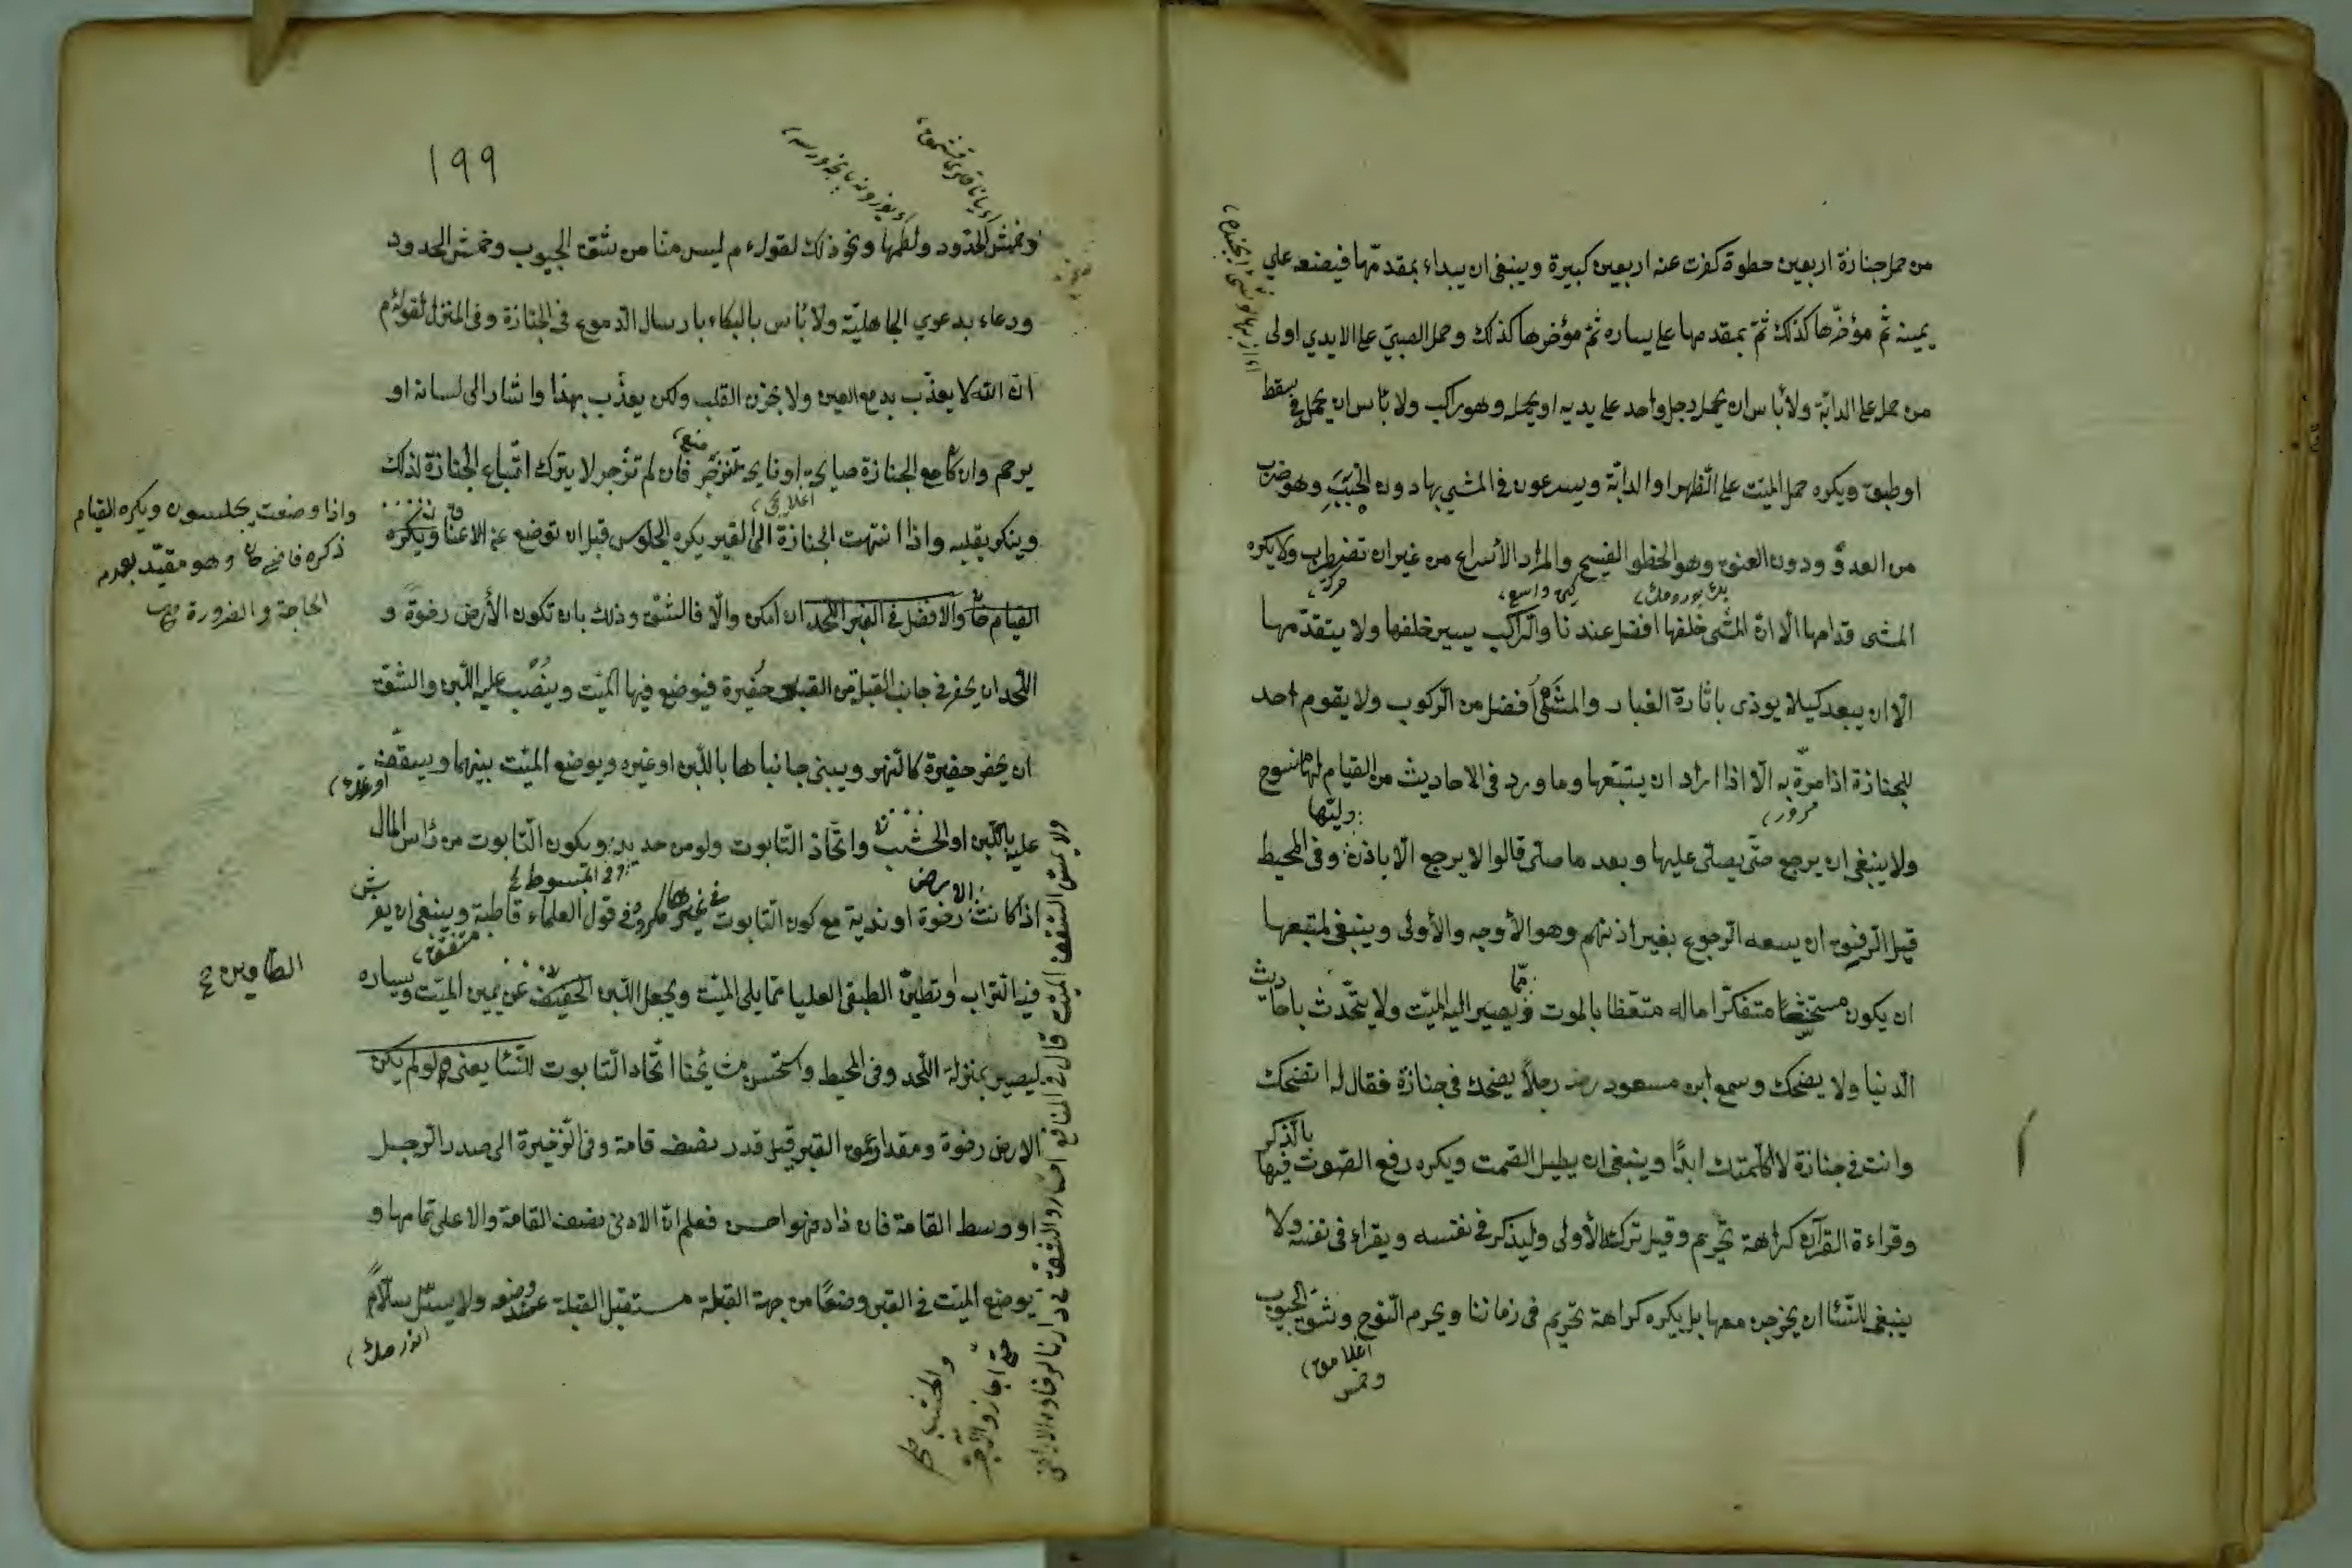 من حمل جنازة اربعين خطوة كفرت عنه اربعين كبيرة وينبغى ان يبداء بمقدمّها فيضعه علي
يمينه ثمّ مؤخرّها كذلك ثمّ بمقدمها على يساره ثمّ مؤخرها كذلك وحمل الصبىّ على الايدي اولى
من حمل على الدابّة ولا بأس ان يحمل رجل واحد على يديه او يحمله وهو راكب ولا بأس ان يحمل فى سفط
او طبق ويكره حمل الميّت على الظهر او الدابّة ويسرعون فى المشى بها دون الخَبَبِ وهو ضرب
من العدوّ ودون العنق وهو الخطو الفسيح والمراد الأسراع من غيران تضطرب ولا يكره
المشى قدامها الّا انّ المشى خلفها افضل عندنا والراكب يسير خلفها ولا يتقدّمها
الّا ان يبعد كيلا يوذى باثارة الغبار والمشى أفضل من الركوب ولا يقوم احد
للجنازة اذا مرّة به الّا اذا اراد ان يتبعها وما ورد فى الاحاديث من القيام لها منسوخ
مرور
وليّها
ولا ينبغى ان يرجع حتّى يصلى عليها وبعد ما صلى قالوا لا يرجع الّا باذن وفى المحيط
قبل الدفن ان يسعه الرجوع بغير اذنهم وهو الأوجه والأولى وينبغى لمتبعها
ان يكون متخشّعًا متفكرًا ماله متعّظا بالموت وممّا يصير اليه الميّت ولا يتحّدث باحاديث
الدنيا ولا يضحك وسمع ابن مسعود رضه رجلاً يضحك فى جنازة فقال له اتضحك
وانت فى جنازة لا كلمتك ابدًا وينبغى ان يطيل الصمت ويكره رفع الصوت فيها بالذكر
وقراءة القرآن كراهة تحريم وقيل ترك الأولى وليذكر فى نفسه ويقراء فى نفسه ولا
ينبغى للنّسا ان يخرجن معها بل يكره كراهة تحريم فى زماننا ويحرم النّوح وشق الجيوب
وخمش
١٩٩
وخمش الخدود ولطمها ونحو ذلك لقوله ءم ليس منّا من شقّ الجيوب وخمش الخدود
ودعاء بدعوي الجاهليّة ولا بأس بالبكاء بارسال الدموع فى الجنازة وفى المنزل لقوله ءم
انّ الله لا يعذّب بدمع العين ولا بحزن القلب ولكن يعذّب بهذا واشار الى لسانه او
يرحم وان كان مع الجنازة صايحة او نايحة تنزجر فان لم تنزجر لا يترك اتّباع الجنازة لذلك
وينكر بقلبه واذا انتهت الجنازة الى القبر يكره الجلوس قبل ان توضع عن الاعناق ويكره
واذا وضعت يجلسون ويكره القيام
ذكره قاضى خان وهو مقيّد بعدم
الحاجة والضرورة
القيام والافضل فى القبر اللحد ان امكن والّا فالشقّ وذلك بان تكون الأرض رخوة و
اللّحد ان يحفر فى جانب القبلة من القبر حفيرة فيوضع فيها الميّت وينصّب عليه اللبن والشقّ
ان يحفر حفيرة كالنهر ويبنى جانباها باللبن او غيره ويوضع الميّت بينهما ويسقّف
عليه باللبن او الخشب واتّخاذ التّابوت ولو من حديد ويكون التّابوت من رأس المال
اذا كانت الارض رخوة او ندية مع كون التّابوت فى غيرها مكروه فى قول العلماء قاطبة وينبغى ان يفرش
فيه التراب وتطيّن الطبقى العليا ممّا يلى الميّت ويجعل اللبن الخفيف عن يمين الميّت ويساره
ليصير بمنزلة اللّحد وفى المحيط واستحسن مشايخنا اتّخاد التّابوت للنّسا يعنى ولو لم يكن
الارض رخوة ومقدار عمق القبر قيل قدر نصف قامة وفى الذّخيرة الى صدر الرجل
او وسط القامة فان زاد فهو احسن فعلم انّ الادنى نصف القامة والاعلى تمامها و
يوضع الميّت فى القبر وضعًا من جهة القبلة مستقبل القبلة عند وضعه ولا يسلّ سلّاً